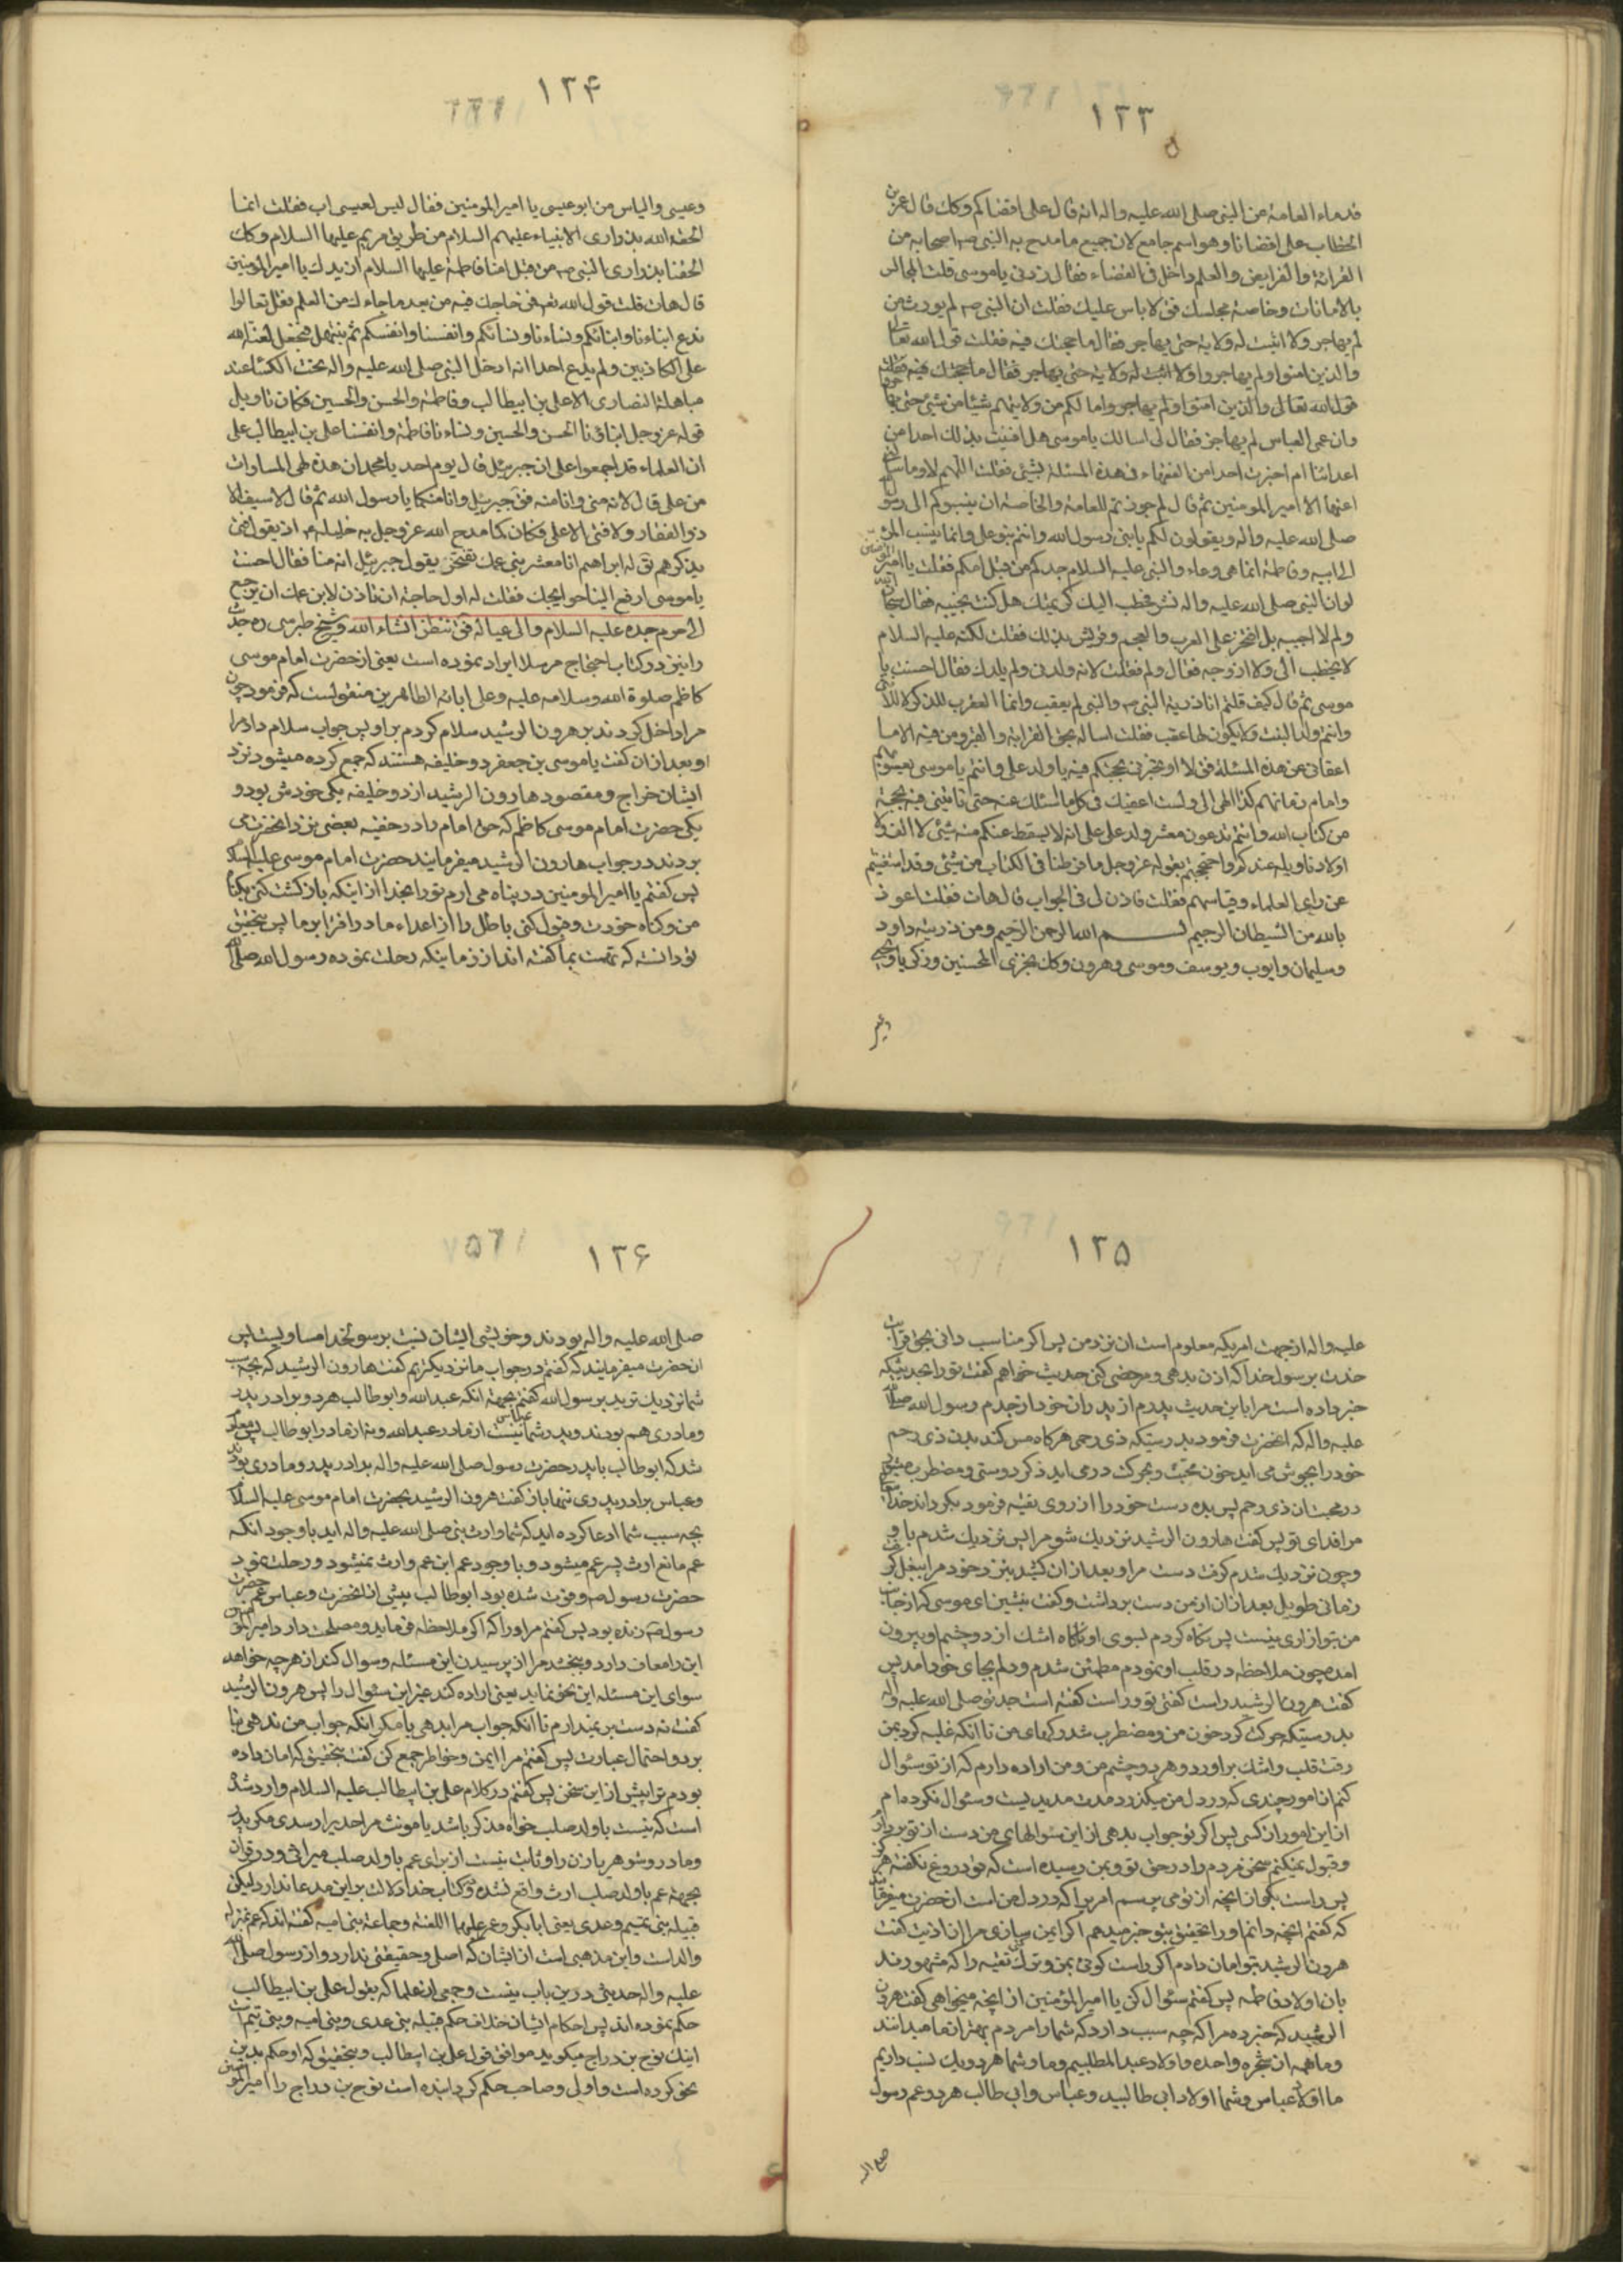 ١٢٣
قدماء العامة من النبی صلی الله علیه واله انه قال علی اقضاکم وکک قال عمر بن
الخطاب علی اقضانا وهو اسم جامع لان جمیع ما مدح به النبی صه اصحابه من
القرائة والفرایض والعلم داخل فی القضاء فقال زدنی یا موسی قلت المجالس
بالامانات وخاصة مجلسک فق لا باس علیک فقلت ان النبی صه لم یورث من
لم یهاجر ولا اثبت له ولایة حتی یهاجر فقال ما حجتک فیه فقلت قول الله تعالی
والذین امنوا ولم یهاجروا ولا اثبت له ولایة حتی یهاجر فقال ما حجتک فیه فقلت
قول الله تعالی والذین امنوا ولم یهاجروا ما لکم من ولایتهم شیئا من شیئ حتی یهاجروا
وان عمی العباس لم یهاجر فقال لی اسالک یا موسی هل افتیت بذلک احدا من
اعدائنا ام اخبرت احدا من الفقهاء فی هذه المسئلة بشیئ فقلت اللهم لا وما سالنی
عنها الا امیر المومنین ثم قال لم جوزتم للعامة والخاصة ان ینسبوکم الی رسول
صلی الله علیه واله ویقولون لکم یا بنی رسول الله وانتم بنو علی وانما ینسب المرء
الی ابیه وفاطمة انما هی وعاء والنبی علیه السلام جدکم من قبل امکم فقلت یا امیر المومنین
لو ان النبی صلی الله علیه واله نشر فخطب الیک کریمتک هل کنت تجیبه فقال سبحان الله
ولم لا اجیبه بل افتخر علی العرب والعجم وقریش بذلک فقلت لکنه علیه السلام
لا یخطب الی ولا ازوجه فقال ولم فقلت لانه ولدنی ولم یلدک فقال احسنت یا
موسی ثم قال کیف قلتم انا ذریة النبی صه والنبی لم یعقب وانما العقب للذکر لا للانثی
وانتم ولد البنت ولا یکون لها عقب فقلت اساله بحق القرابة والقبر ومن فیه الا ما
اعفانی عن هذه المسئلة فق لا او تخبرنی بحجتکم فیه یا ولد علی وانتم یا موسی یعسوبهم
وامام زمانهم کذا انهی الی ولست اعفیک فی کل ما اسئلک عنه حتی تاتینی فیه بحجة
من کتاب الله وانتم تدعون معشر ولد علی انه لا یسقط عنکم منه شیئ لا الف ولا
اولا و تاویله عندکم واحتججتم بقوله عز وجل ما فرطنا فی الکتاب من شیئ وقد استغنیتم
عن رای العلماء وقیاسهم فقلت تاذن لی فی الجواب قال هات فقلت اعوذ
بالله من الشیطان الرجیم بسم الله الرحمن الرحیم ومن ذریته داود
وسلیمان وایوب ویوسف وموسی وهرون وکک نجزی المحسنین وزکریا ویحیی
وعیسی
١٢۴
وعیسی والیاس من ابو عیسی یا امیر المومنین فقال لیس لعیسی اب فقلت انما
الحقه الله بذراری الانبیاء علیهم السلام من طریق مریم علیها السلام وکک
الحقنا بذراری النبی صه من قبل امنا فاطمة علیها السلام ازیدک یا امیر المومنین
قال هات قلت قول الله تعه فمن حاجک فیه من بعد ما جاءک من العلم فقل تعالوا
ندع ابناءنا وابنائکم ونساءنا ونسائکم وانفسنا وانفسکم ثم نبتهل فنجعل لعنة الله
علی الکاذبین ولم یدع احدا انه ادخل النبی صلی الله علیه واله تحت الکساء عند
مباهلة النصاری الا علی بن ابیطالب وفاطمة والحسن والحسین فکان تاویل
قوله عز وجل ابنائنا الحسن والحسین ونساءنا فاطمة وانفسنا علی بن ابیطالب علی
ان العلماء قد اجمعوا علی ان جبرئیل قال یوم احد یا محمد ان هذه لهی المساوات
من علی قال لانه منی وانا منه فق جبرئیل وانا منکما یا رسول الله ثم قال لا سیف الا
ذو الفقار ولا فتی الا علی فکان کما مدح الله عز وجل به خلیله ع اذ یقول فتی
یذکرهم یق له ابراهیم انا معشر بنی عمک نفتخر بقول جبرئیل انه منا فقال احسنت
یا موسی ارفع الینا حوایجک فقلت له اول حاجة ان تاذن لابن عمک ان یرجع
الی حرم جده علیه السلام والی عیاله فق ننظر انشاء الله وشیخ طبرسی ره حدیث
را نیز در کتاب احتجاج مرسلا ایراد نموده است یعنی از حضرت امام موسی
کاظم صلوة الله وسلامه علیه وعلی ابائه الطاهرین منقولست که فرمود چون
مرا داخل کردند بر هرون الرشید سلام کردم بر او پس جواب سلام داد مرا
و بعد از ان گفت یا موسی بن جعفر دو خلیفه هستند که جمع کرده میشود نزد
ایشان خراج و مقصود هارون الرشید از دو خلیفه یکی خودش بود و
یکی حضرت امام موسی کاظم که حق امام را در خفیه بعضی نزد انحضرت می
بردند در جواب هارون الرشید میفرمایند حضرت امام موسی علیه السلام
پس گفتم یا امیر المومنین در پناه می ارم تو را بخدا از اینکه بازگشت کنی بگناه
من و گناه خودت و قبول کنی باطل را از اعداء ما در افترا بر ما پس بتحقیق
تو دانسته که تهمت بما گفته اند از زمانیکه رحلت نموده رسول الله صلی الله
١٢۵
علیه واله از جهت امریکه معلوم است ان نزد من پس اگر مناسب دانی بحق قرابت
خدت برسول خدا که اذن بدهی و مرخص کنی حدیث خواهم گفت تو را بحدیثیکه
خبر داده است مرا باین حدیث پدرم از پدران خود از جدم رسول الله صلی الله
علیه واله که انحضرت فرمود بدرستیکه ذی رحمی هر گاه مس کند بدن ذی رحم
خود را بجوش می اید خون محبت و بحرکت در می اید ذکر دوستی و مضطرب میشود
در محبت ان ذی رحم پس بده دست خود را از روی تقیه فرمود بگرداند خدایتعالی
مرا فدای تو پس گفت هارون الرشید نزدیک شو مرا پس نزدیک شدم باو
و چون نزدیک شدم گرفت دست مرا و بعد از ان کشید بنزد خود مرا ببغل گرفت
زمانی طویل بعد از ان از من دست برداشت و گفت بنشین ای موسی که از جانب
من بتو ازاری نیست پس نگاه کردم بسوی او ناگاه اشک از دو چشم او بیرون
امده چون ملاحظه در قلب او نمودم مطمئن شدم و دلم بجای خود امد پس
گفت هرون الرشید راست گفتی تو و راست گفته است جد تو صلی الله علیه واله
بدرستیکه حرکت کرد خون من و مضطرب شد رگهای من تا انکه غلبه کرد بمن
رقت قلب و اشک براورد و هر دو چشم من و من اراده دارم که از تو سئوال
کنم از امور چندی که در دل من میگذرد مدت مدیدیست و سئوال نکرده ام
از این امور از کسی پس اگر تو جواب بدهی از این سئوالهای من دست از تو بردارم
و قبول نمیکنم سخن مردم را در حق تو و بمن رسیده است که تو دروغ نگفته هرگز
پس راست بگو از انچه از تو می پرسم امریرا که در دل من است ان حضرت میفرمایند
که گفتم انچه دانم او را بتحقیق بتو خبر میدهم اگر ایمن سازی مرا از اذیت گفت
هرون الرشید بتو امان دادم اگر راست گوئی بمن و ترک کنی تقیه را که مشهورند
بان اولاد فاطمه پس گفتم سئوال کن یا امیر المؤمنین از انچه میخواهی گفت هرون
الرشید که خبر ده مرا که چه سبب دارد که شما را مردم بهتر از ما میدانند
و ما همه از شجره واحده و اولاد عبد المطلبیم و ما و شما هر دو یک نسب داریم
ما اولاد عباس و شما اولاد ابی طالبید و عباس و ابی طالب هر دو عم رسول
صلی الله
١٢۶
صلی الله علیه واله بودند و خویشی ایشان نسبت برسولخدا مساویست پس
انحضرت میفرمایند که گفتم در جواب ما نزدیکتریم گفت هارون الرشید که بچه سبب
شما نزدیک ترید برسول الله گفتم بجهة انکه عبد الله و ابو طالب هر دو برادر پدر
و مادری هم بودند و پدر شما عباس نیست از مادر عبد الله و نه از مادر ابو طالب پس معلوم
شد که ابو طالب با پدر حضرت رسول صلی الله علیه واله برادر پدر و مادری بودند
و عباس برادر پدری تنها باز گفت هرون الرشید بحضرت امام موسی علیه السلام
بچه سبب شما ادعا کرده اید که شما وارث نبی صلی الله علیه واله اید با وجود انکه
عم مانع ارث پسر عم میشود و با وجود عم ابن عم وارث نمیشود و رحلت نمود
حضرت رسول صه و فوت شده بود ابو طالب پیش از انحضرت و عباس عم حضرت
رسول صه زنده بود پس گفتم مر او را که اگر ملاحظه فرماید و مصلحت دارد امیر المؤمنین
این را معاف دارد و ببخشد مرا از پرسیدن این مسئله و سوال کند از هر چه خواهد
سوای این مسئله این نحو نماید یعنی اراده کند غیر این سئوال را پس هرون الرشید
گفت نه دست بر نمیدارم تا انکه جواب مرا بدهی یا مگر انکه جواب من ندهی بنا
بر دو احتمال عبارت پس گفتم مرا ایمن و خواطر جمع کن گفت بتحقیق که امان داده
بودم ترا پیش از این سخن پس گفتم در کلام علی بن ابیطالب علیه السلام وارد شده
است که نیست با ولد صلب خواه مذکر باشد یا مونث مر احدیرا وسدی مگر پدر
و مادر و شوهر یا زن را و ثابت نیست از برای عم با ولد صلب میراثی و در قران
بجهة عم با ولد صلب ارث واقع نشده و کتاب خدا دلالت بر این مدعا ندارد لیکن
قبیله بنی تمیم و عدی یعنی ابا بکر و عمر علیهما اللعنة و جماعة بنی امیه گفته اند که عم بمنزله
والد است و این مذهبی است از ایشان که اصلی و حقیقتی ندارد و از رسول صلی الله
علیه واله حدیثی در این باب نیست و جمعی از علما که بقول علی بن ابیطالب
حکم نموده اند پس احکام ایشان خلاف حکم قبیله بنی عدی و بنی امیه و بنی تیم است
اینک نوح بن دراج میگوید موافق قول علی بن ابیطالب و بتحقیق که او حکم بدین
نحو کرده است و اولی و صاحب حکم گردانیده است نوح بن دراج را امیر المؤمنین